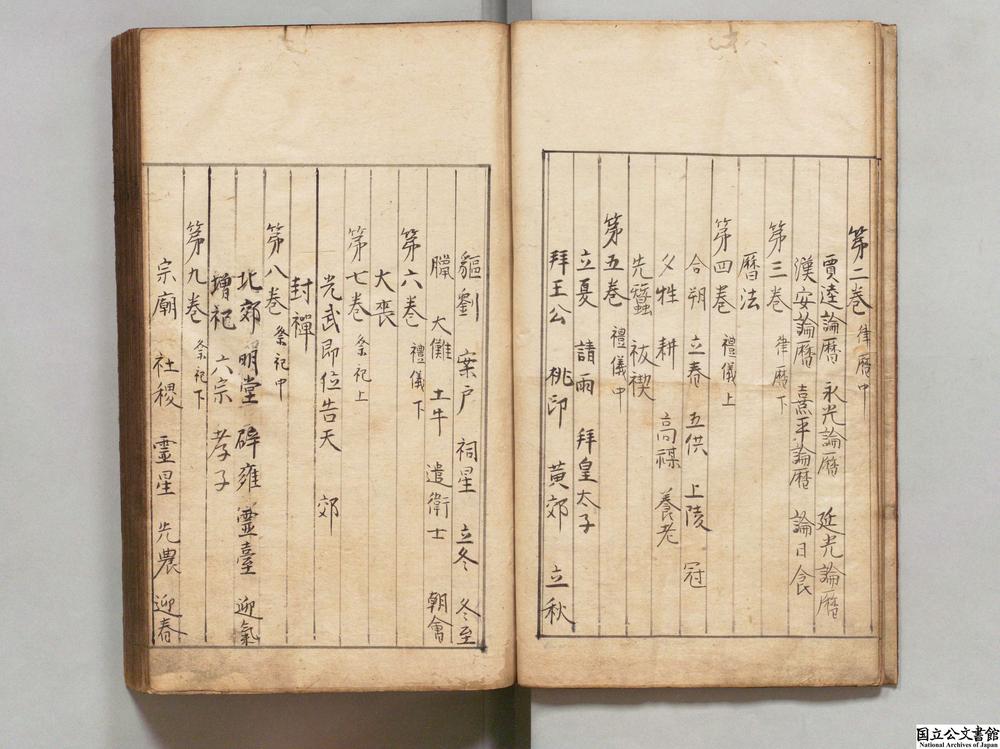 第二卷 律曆中
賈逵論曆 永光論曆 延光論曆
漢安論曆 熹平論曆 論日食
第三卷 律曆下
曆法
第四卷 禮儀上
合朔 立春 五供 上陵 冠
夕牲 耕 高禖 養老
先蠶 祓禊
第五卷 禮儀中
立夏 請雨 拜皇太子
拜王公 桃印 黄郊 立秋
貙劉 案户 祠星 立冬 冬至
臘 大儺 土牛 遣衛士 朝會
第六卷 禮儀下
大喪
第七卷 祭祀上
光武即位告天 郊
封禪
第八卷 祭祀中
北郊 明堂 辟雍 靈臺 迎氣
增祀 六宗 孝子
第九卷 祭祀下
宗廟 社稷 靈星 先農 迎春
国立公文書館
National Archives of Japan